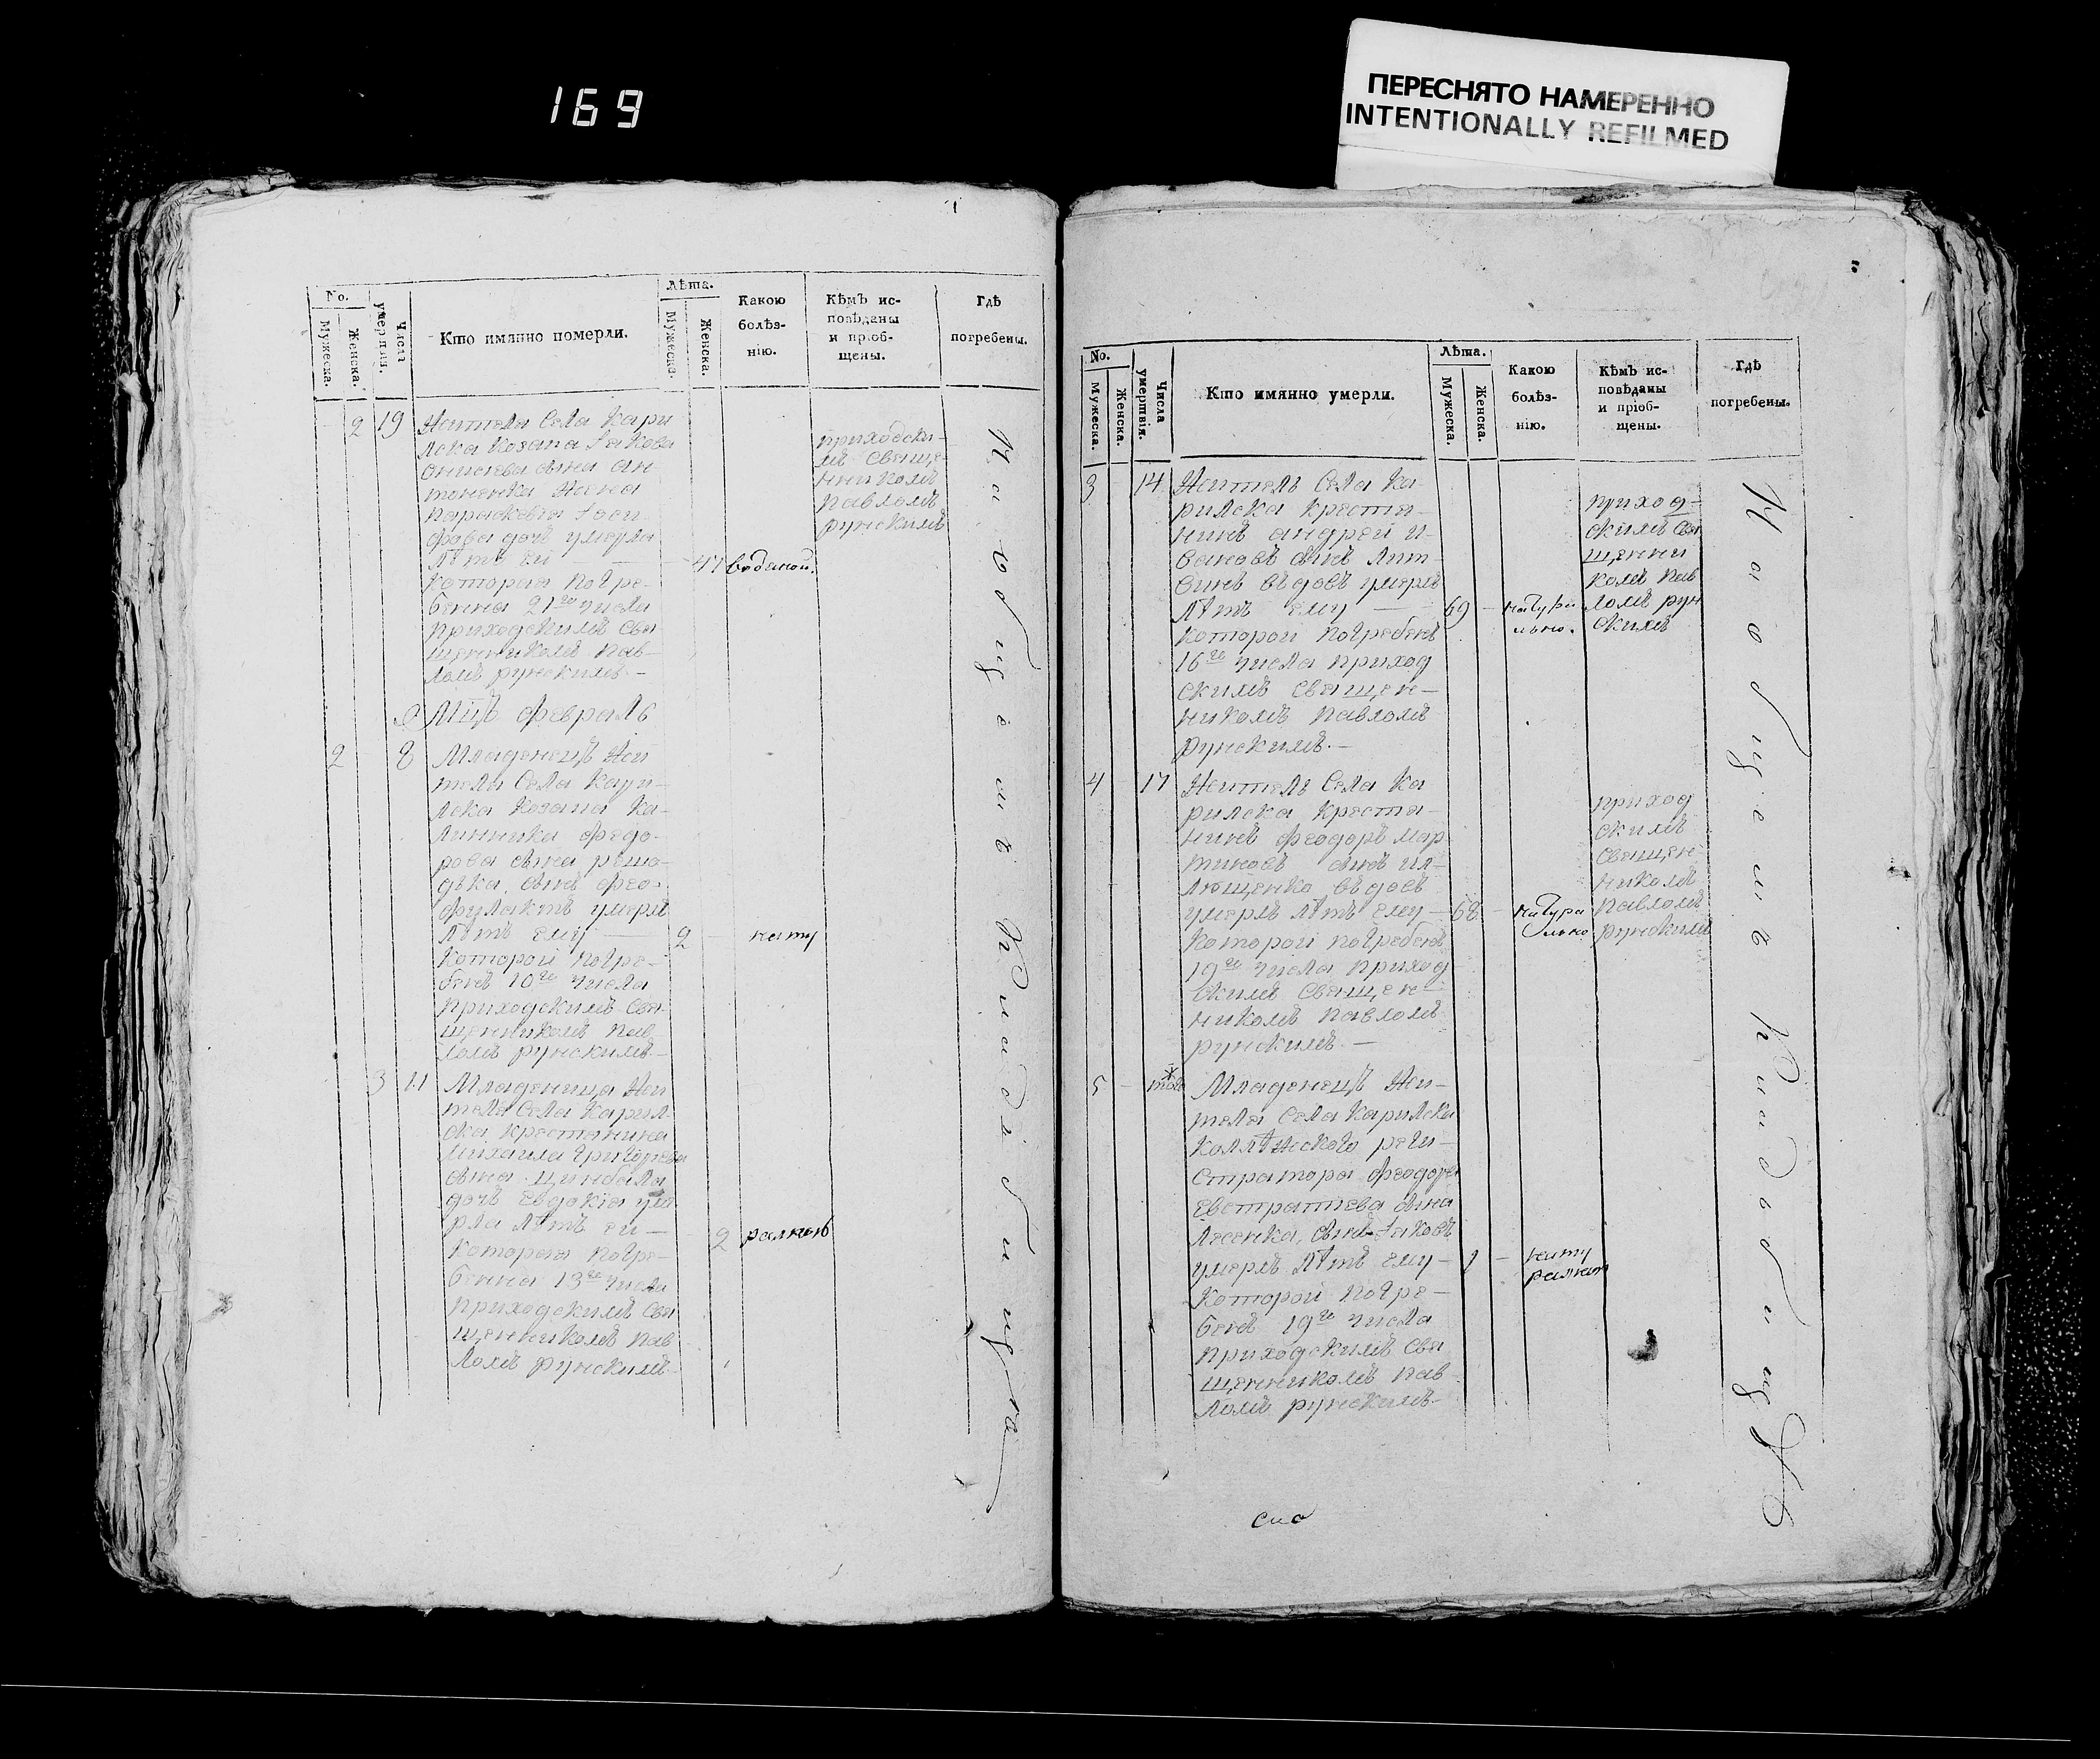 169
ПЕРЕСНЯТО НАМЕРЕННО
INTENTIONALLY REFILMED
No.
Мужеска.
Женска.
Числа умертвія.
Кто имянно померли.
Лѣта.
Мужеска.
Женска.
Какою
болѣз-
нію.
Кѣмъ ис-
повѣданы
и пріоб-
щены.
Гдѣ
погребены.
2 19 Жителя Села Кари
лска козака Іакова
Онисіева сына Ан-
тоненка жена
Параскевія Іоси-
фова дочь умерла
лѣтъ ей — 47 водяной.
которая погре-
бенна 21го числа
приходскимъ свя
щенникомъ Пав-
ломъ Рунскимъ.—
приходски-
мъ свяще
нникомъ
Павломъ
Рунскимъ
Мцъ Февраль
2 8 Младенецъ жи
теля Села Кари-
лска козака Ка-
линника Федо-
рова сына
сынъ Фео-
филактъ умеръ
лѣтъ ему — 2 - нату
которой погре-
бенъ 10го числа
приходскимъ свя-
щенникомъ Пав
ломъ Рунскимъ.—
3 11 Младеница жи
теля Села Карил-
ска крестянина
Михаила Григориева
сына Цимбала
дочь Евдокіа уме
рла лѣтъ ей — 2 ралною
которая погре-
бенна 13го числа
приходскимъ свя
щенникомъ Пав
ломъ Рунскимъ.
На общемъ кладбища
No.
Мужеска.
Женска.
Числа умертвія.
Кто имянно умерли.
Лѣта.
Мужеска.
Женска.
Какою
болѣз-
нію.
Кѣмъ ис-
повѣданы
и пріоб-
щены.
Гдѣ
погребены.
3 - 14 Житель Села Ка-
рилска крестя-
нинъ Андрей И-
вановъ сынъ Лит-
винъ вдовъ умеръ
лѣтъ ему — 69 - натура
льно.
которой погребенъ
16го числа приход
скимъ священ-
никомъ Павломъ
Рунскимъ.—
приход-
скимъ свя
щенни
комъ Пав
ломъ Рун
скимъ
4 - 17 Житель Села Ка
рилска крестя-
нинъ Феодоръ Мар
тиновъ сынъ Ил-
лющенко вдовъ
умеръ лѣтъ ему — 68 - натура
льно
которой погребенъ
19го числа приход
скимъ священ-
никомъ Павломъ
Рунскимъ.—
приход
скимъ
священ
никомъ
Павломъ
Рунскимъ
5 - того Младенецъ жи-
теля Села Карилска
коллѣжского реги-
стратора Феодора
Евстратіева сына
сынъ Іаковъ
умеръ лѣтъ ему — 1 - нату
ралною
которой погре-
бенъ 19го числа
приходскимъ свя
щенникомъ Пав
ломъ Рунскимъ.
На общемъ кладбищѣ